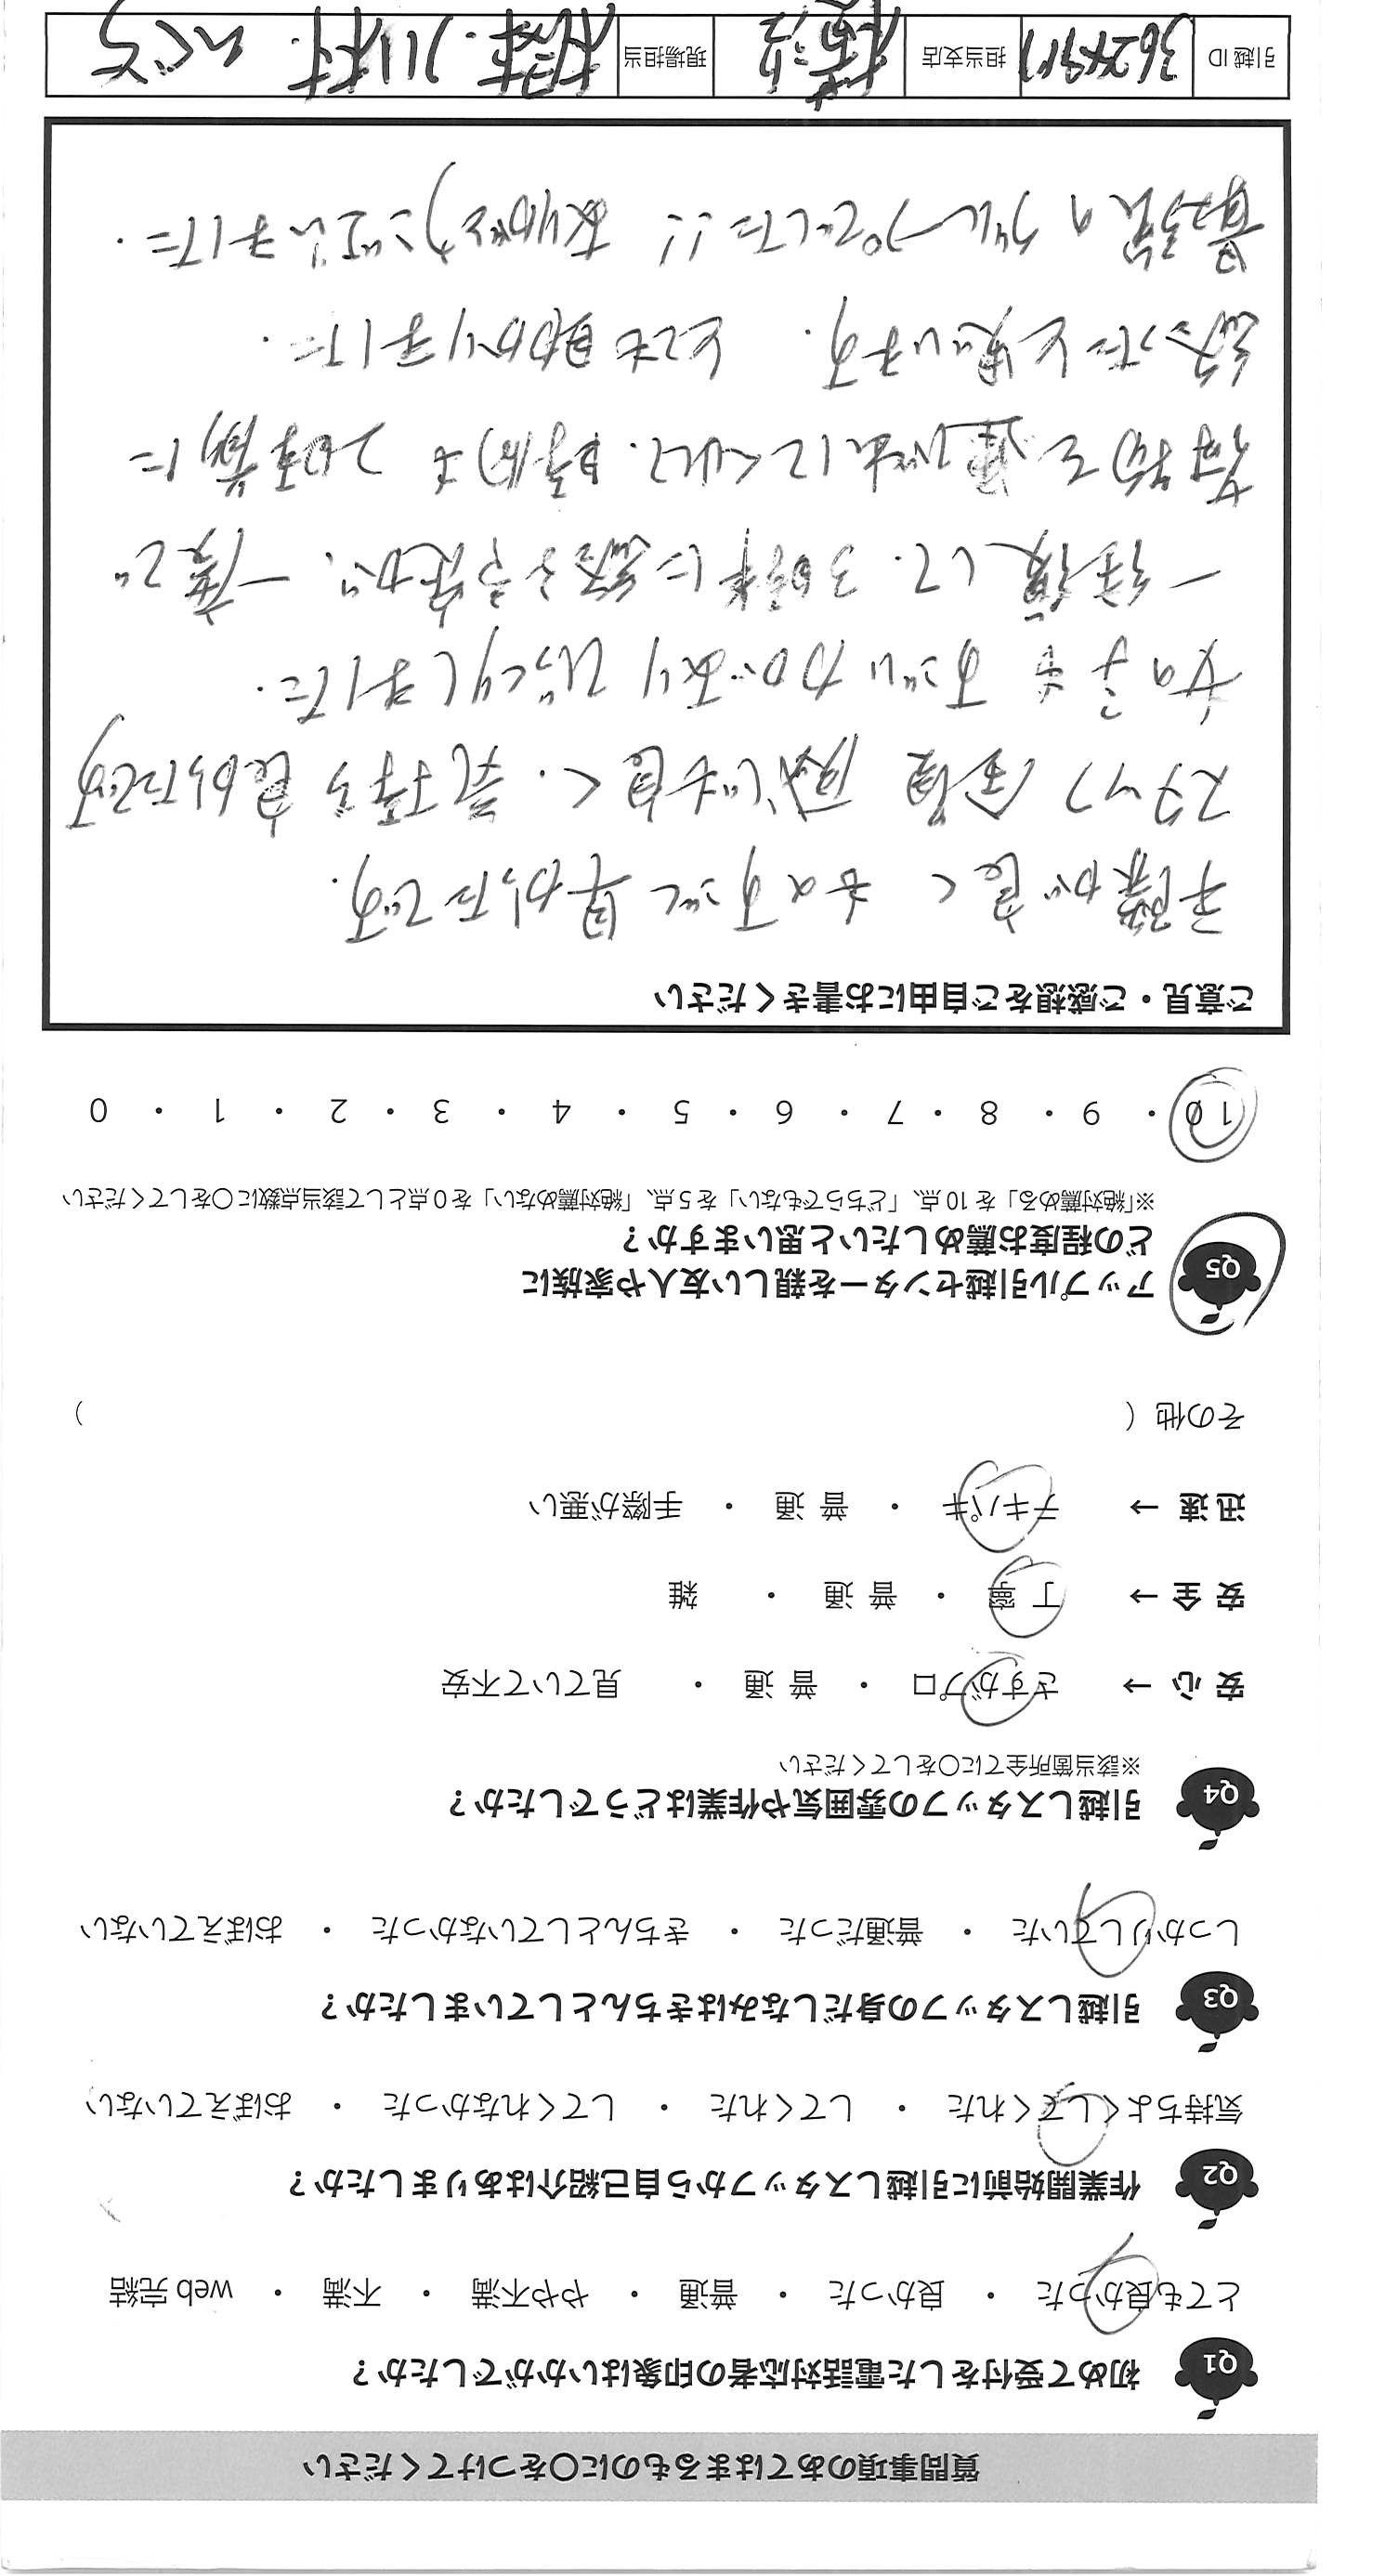 質問事項のあてはまるものに〇をつけてください
Q1 初めて受付をした電話対応者の印象はいかがでしたか？
とても良かった ・ 良かった ・ 普通 ・ やや不満 ・ 不満 ・ web 完結
Q2 作業開始前に引越しスタッフから自己紹介はありましたか？
気持ちよくしてくれた ・ してくれた ・ してくれなかった ・ おぼえていない
Q3 引越しスタッフの身だしなみはきちんとしていましたか？
しっかりしていた ・ 普通だった ・ きちんとしていなかった ・ おぼえていない
Q4 引越しスタッフの雰囲気や作業はどうでしたか？
※該当箇所全てに〇をしてください
安 心 → さすがプロ ・ 普 通 ・ 見ていて不安
安 全 → 丁 寧 ・ 普 通 ・ 雑
迅 速 → テキパキ ・ 普 通 ・ 手際が悪い
その他（ ）
Q5 アップル引越センターを親しい友人や家族に
どの程度お薦めしたいと思いますか？
※「絶対薦める」を 10 点、「どちらでもない」を 5 点、「絶対薦めない」を 0 点として該当点数に〇をしてください
10 ・ 9 ・ 8 ・ 7 ・ 6 ・ 5 ・ 4 ・ 3 ・ 2 ・ 1 ・ 0
ご意見・ご感想をご自由にお書きください
手際が良く ものすごく早かったです。
スタッフ全員 感じも良く、気持ち良かったです
女の子も すごい力があり びっくりしました。
一往復して、3時半に終る予定が、一度で
荷物を運んでくれて、時間も 2時前に
終ったと思います。 とても助かりました。
最強のグループでした!! ありがとうございました。
引越 ID 担当支店 現場担当 川村